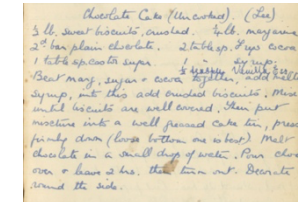 Chocolate Cake (Uncooked). (Les)
½ lb. sweet biscuits, crushed. ¼ lb. margarine
2ᵈ bar plain chocolate. 2 tablesp. cocoa
1 tablesp. castor sugar. 1 " syrup.
Beat marg, sugar + cocoa together, add melted
syrup, into this add crushed biscuits. Mix
until biscuits are well covered. Then put
mixture into a well greased cake tin, press
firmly down (loose bottom one is best) Melt
chocolate in a small drop of water. Pour choc
over + leave 2 hrs. then turn out. Decorate
round the side.